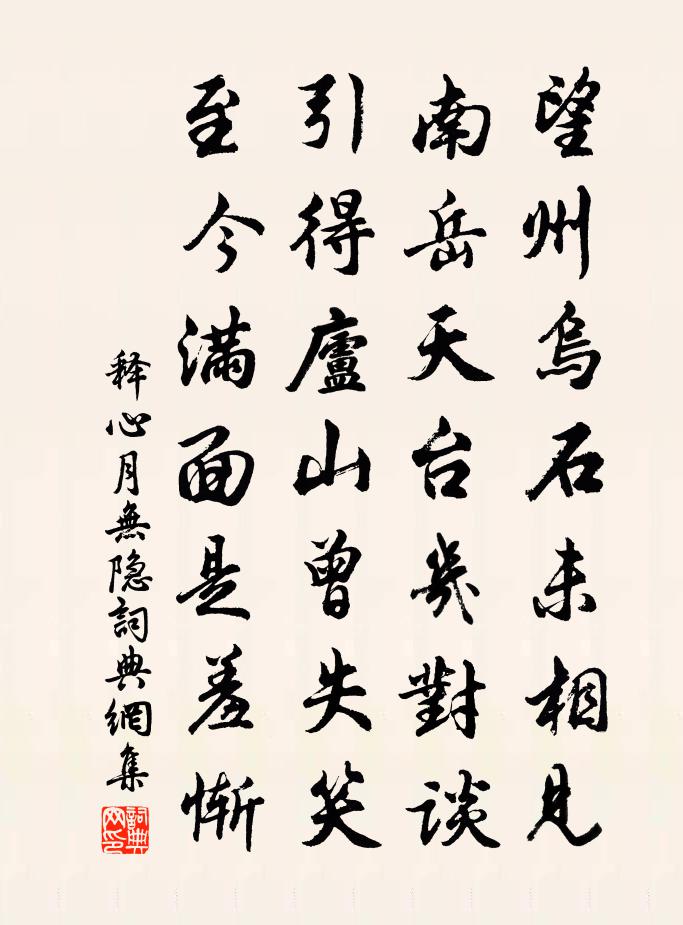 望州烏石未相見
南岳天台幾對談
引得廬山曾失笑
至今滿面是羞慚
释心月無隐詞典網集
詞典网印